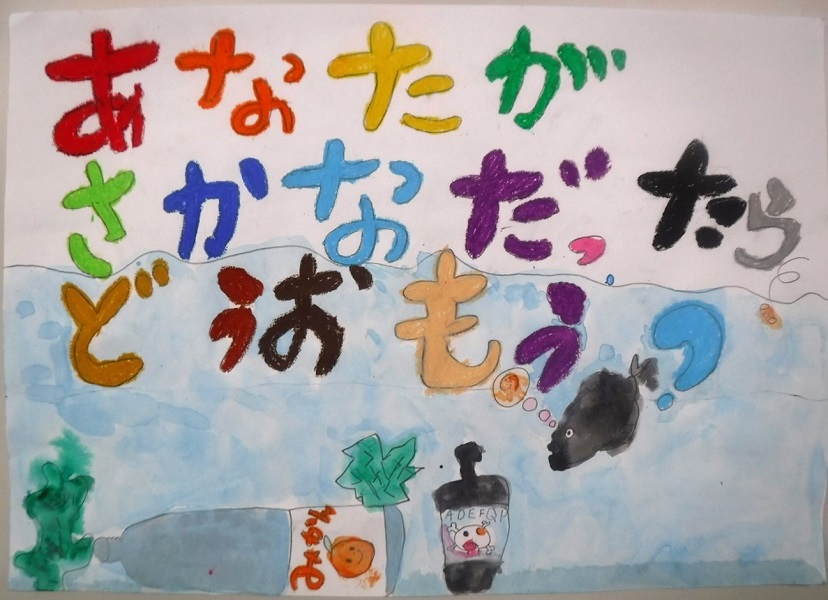 あなたが
さかなだったら
どうおもう?
ADEFQP